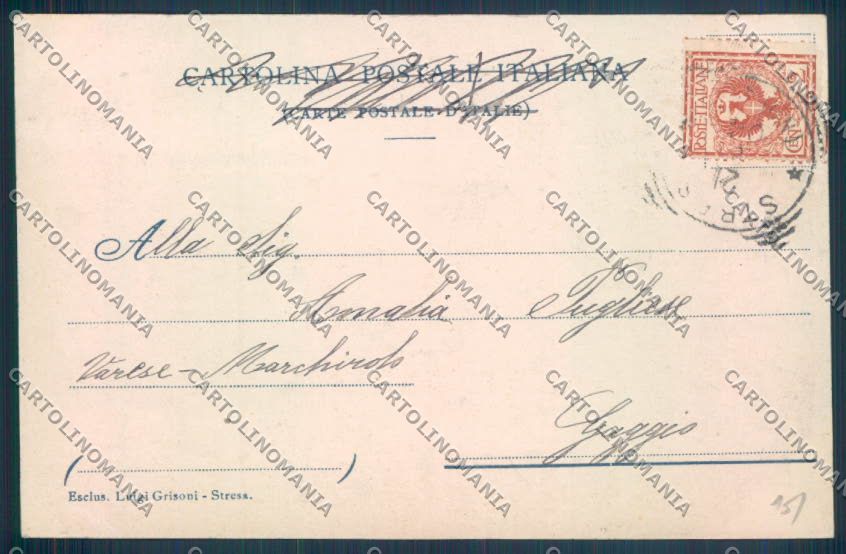 CARTOLINA POSTALE ITALIANA
(CARTE POSTALE D'ITALIE)
POSTE·ITALIANE
Alla Sig.
Amalia Pugliese
Varese - Marchirolo
Gaggio
Esclus. Luigi Grisoni - Stresa.
15/
CARTOLINOMANIA